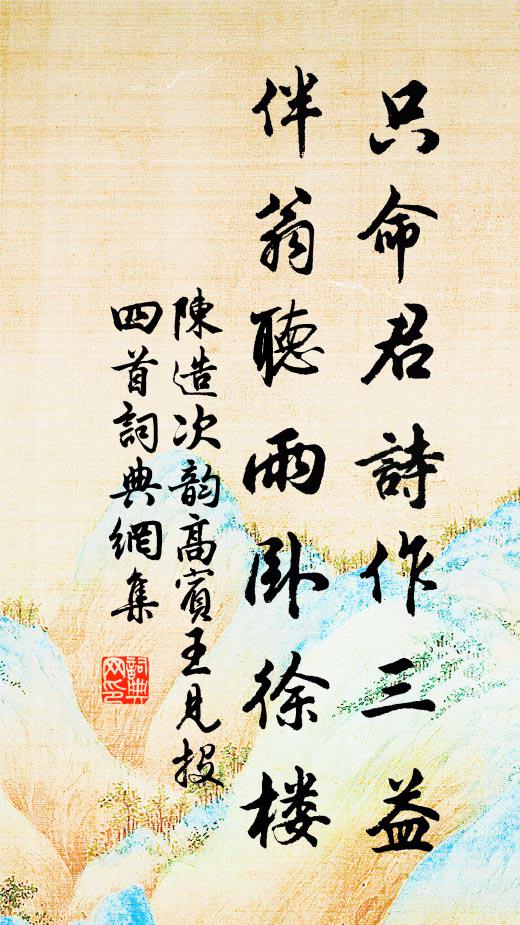 只命君詩作三益
伴翁聽雨卧徐楼
陳造次韵高賓王見投
四首詞典網集
詞典网印